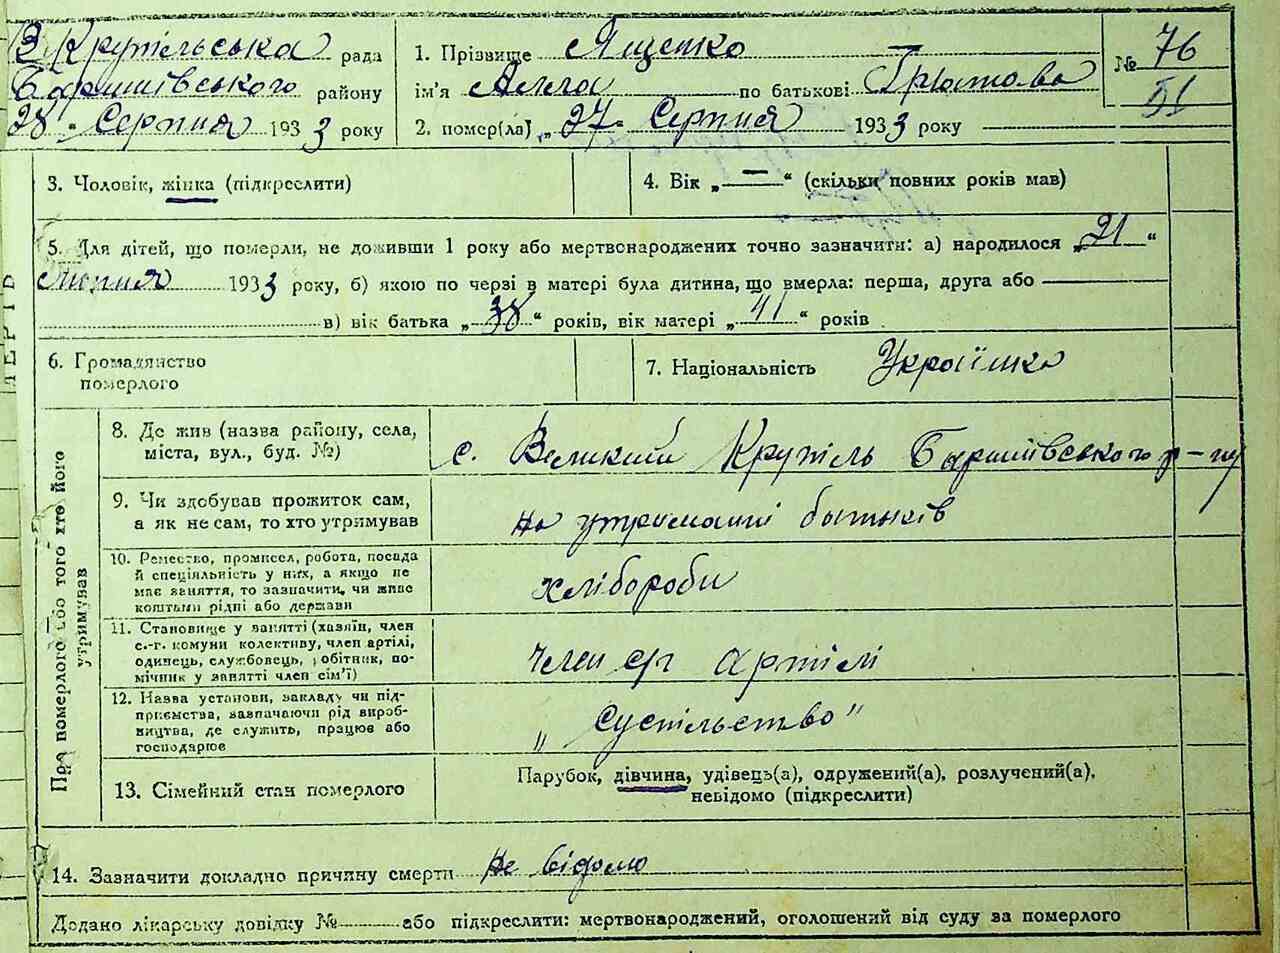 В Крупільська рада
Баришівського району
28 " Серпня 1933 року
1. Прізвище Ященко
ім'я Алла по батькові
2. помер(ла) „ 27 " Серпня 1933 року
№ 76
51
3. Чоловік, жінка (підкреслити)
4. Вік „ — “ (скільки повних років мав)
5. Для дітей, що померли, не доживши 1 року або мертвонароджених точно зазначити: а) народилося „ 21 “
Липня 1933 року, б) якою по черзі в матері була дитина, що вмерла: перша, друга або
в) вік батька „ 38 “ років, вік матері „ 41 “ років
6. Громадянство
померлого
7. Національність Українка
Про померлого або того хто його
утримував
8. Де жив (назва району, села,
міста, вул., буд. №)
с. Великий Крупіль Баришівського р-ну
9. Чи здобував прожиток сам,
а як не сам, то хто утримував
на утриманні батьків
10. Ремество, промисел, робота, посада
й спеціяльність у них, а якщо не
має заняття, то зазначити, чи живе
коштами рідні або держави
хлібороби
11. Становище у занятті (хазяїн, член
с.-г. комуни колективу, член артілі,
одинець, службовець, робітник, по-
мічник у занятті член сім'ї)
член сг артілі
12. Назва установи, закладу чи під-
приємства, зазначаючи рід вироб-
ництва, де служить, працює або
господарює
„ Суспільство "
13. Сімейний стан померлого
Парубок, дівчина, удівець(а), одружений(а), розлучений(а),
невідомо (підкреслити)
14. Зазначити докладно причину смерти не відомо
Додано лікарську довідку № або підкреслити: мертвонароджений, оголошений від суду за померлого